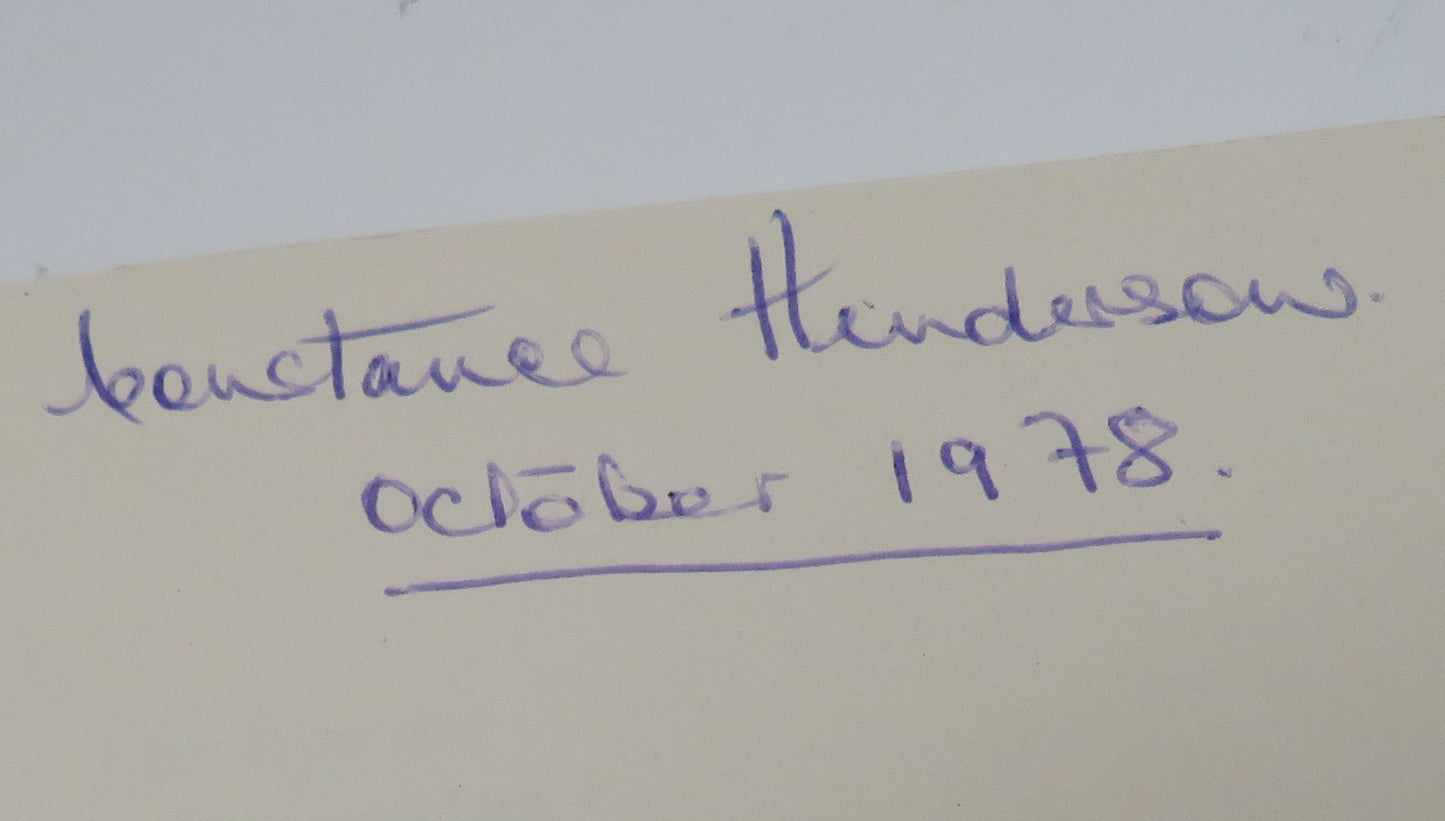 Constance Henderson.
October 1978.